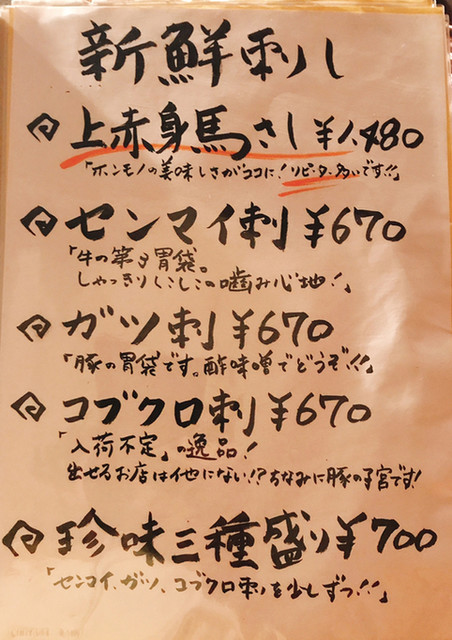 新鮮刺し
上赤身馬さし ¥1,480
「ホンモノの美味しさがココに!リピーター多いです!!」
センマイ刺 ¥670
「牛の第3胃袋。
しゃっきりしこしこの噛み心地!」
ガツ刺 ¥670
「豚の胃袋です。酢味噌でどうぞ!!」
コブクロ刺 ¥670
「入荷不定」の逸品!
出せるお店は他にない!?ちなみに豚の子宮です!
珍味三種盛り ¥700
「センマイ、ガツ、コブクロ刺を少しずつ!!」